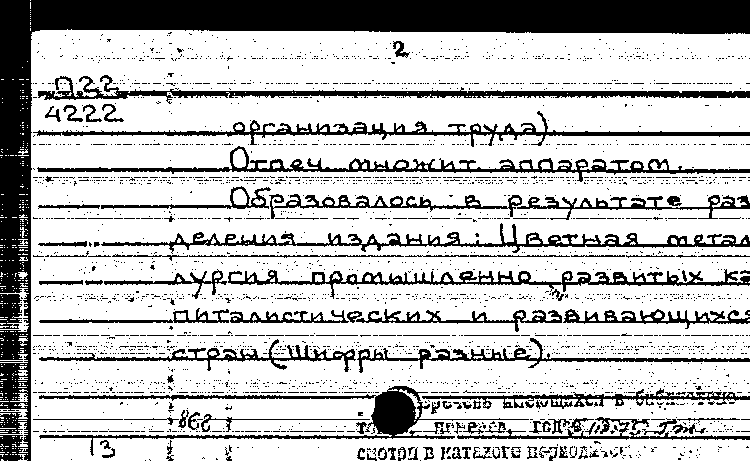 2
П22
4222
организация труда).
Отпеч. множит. аппаратом.
Образовалось в результате раз
деления издания: Цветная метал
лургия промышленно развитых ка
питалистических и развивающихся
стран (Шифры разные).
868
имеющихся в библиотеке
13
смотри в каталоге